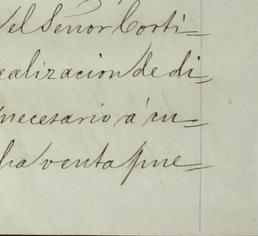 el Señor Corti=
ealizacion de di=
necesario á cu=
ha venta pue=